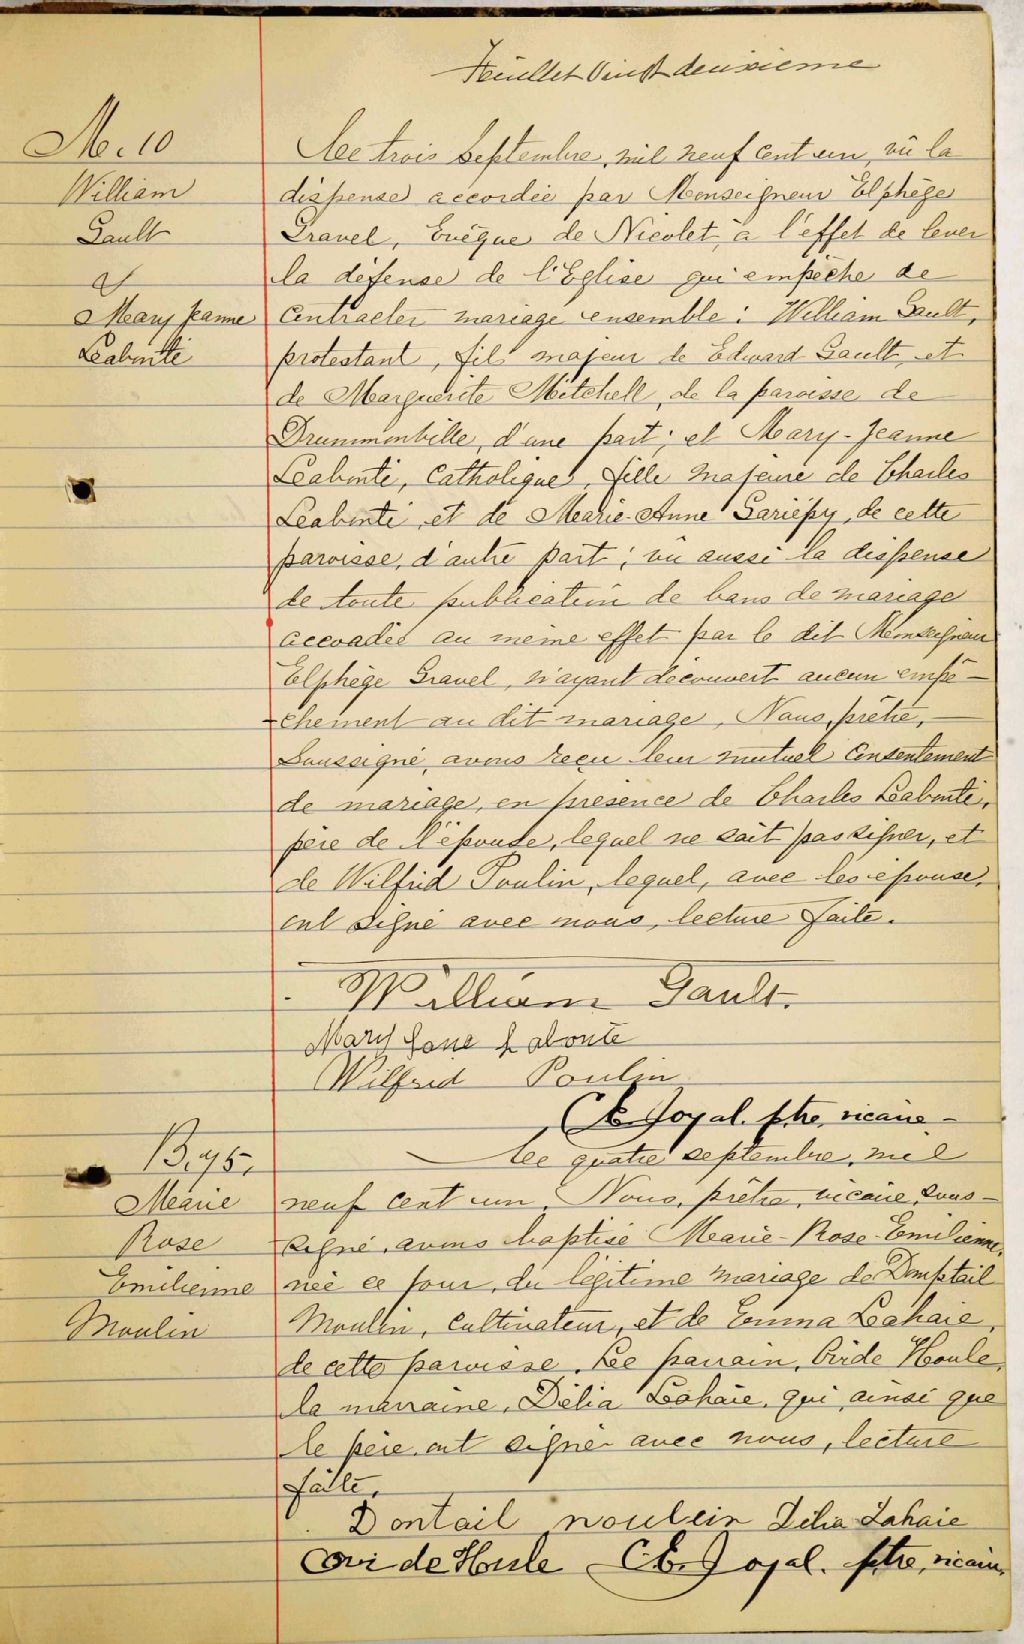 Feuillet vingt deuxieme
M. 10
William
Gault
&
Mary Jeanne
Labonté
Le trois Septembre, mil neuf cent un, vû la
dispense accordée par Monseigneur Elphège
Gravel, Evêque de Nicolet, à l'effet de lever
la défense de l'Eglise qui empêche de
contracter mariage ensemble : William Gault,
protestant, fils majeur de Edward Gault et
de Marguerite Mitchell, de la paroisse de
Drummonville, d'une part; et Mary-Jeanne
Labonté, Catholique, fille majeure de Charles
Labonté et de Marie-Anne Gariépy, de cette
paroisse, d'autre part; vû aussi la dispense
de toute publication de bans de mariage
accordée au même effet par le dit Monseigneur
Elphège Gravel, n'ayant découvert aucun empê-
-chement au dit mariage, Nous, prêtre,
Soussigné, avons reçu leur mutuel Consentement
de mariage, en présence de Charles Labonté,
père de l'épouse, lequel ne sait pas signer, et
de Wilfrid Poulin, lequel, avec les épouse,
ont signé avec nous, lecture faite.
William Gault.
Mary Jane Labonte
Wilfrid Poulin
C.E. Joyal. ptre, vicaire -
B. 75.
Marie
Rose
Emilienne
Moulin
Le quatre septembre, mil
neuf cent un, Nous, prêtre, vicaire, sous-
signé, avons baptisé Marie-Rose-Emilienne,
née ce jour, du légitime mariage de Domptail
Moulin, Cultivateur, et de Emma Lahaie,
de cette paroisse. Le parrain, Ovide Houle,
la marraine, Délia Lahaie, qui, ainsi que
le père, ont signé avec nous, lecture
faite.
Dontail moulein Délia Lahaie
Ovide Houle C.E. Joyal. ptre, vicaire.